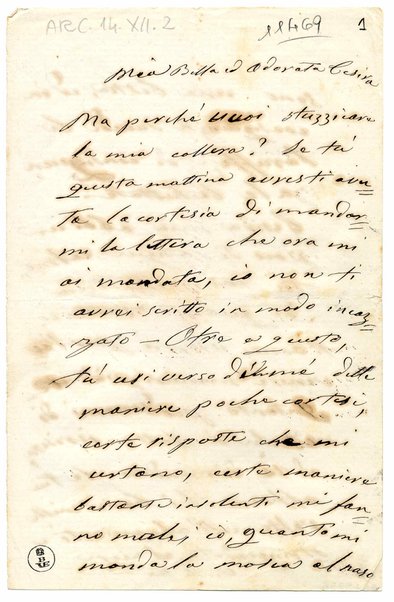 ARC. 14. XII. 2
11469
1
Mia Bella ed adorata Cesira
Ma perché vuoi stuzzicare
la mia collera? Se tú
questa mattina avresti avu=
ta la cortesia di mandar=
mi la lettera che ora mi
ai mandata, io non ti
avrei scritto in modo incaz=
zato — Otre a questo,
tú usi verso di me delle
maniere poche cortesi,
certe risposte che mi
urtano, certe maniere
bastente insolenti mi fan=
no male, io, quanto mi
monda la mosca al naso